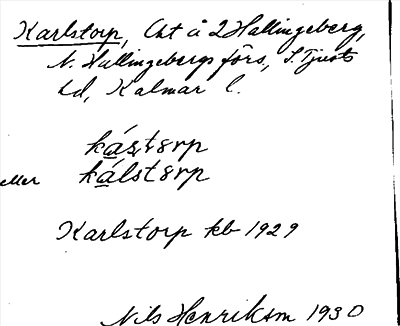 Karlstorp, Cht å 2 Hallingeberg,
N. Hallingebergs förs, S. Tjusts
hd, Kalmar l.
kás̩tɤrp
eller kálstɤrp
Karlstorp kb 1929
Nils Henrikson 1930